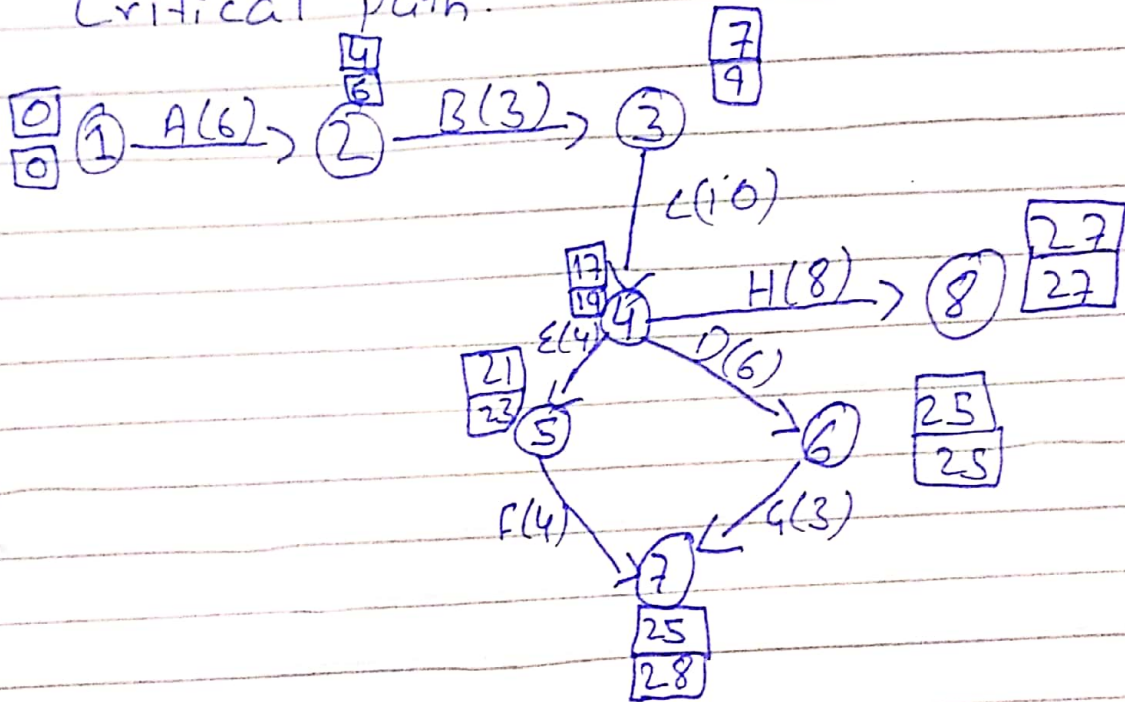 Critical path.
4
6
7
9
0
0
1 A(6) 2 B(3) 3
C(10)
17
19
4 H(8) 8
27
27
E(4) D(6)
21
23
5 6
25
25
F(4) G(3)
7
25
28